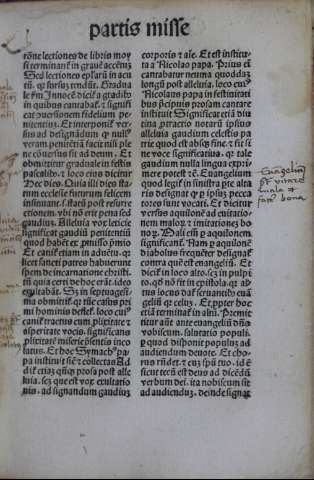 partis misse
rōne lectiones de libris moy
si terminant̄ in gravē accētū
Sed lectiones epl'arū in acu
tū. qꝛ sursuȝ tendūt. Gradua
le ẜm Innocē. dicit̄ a gradib
in quibus cantabat̄. ⁊ signifi
cat ꝯuersionem fidelium pe
nitentiuȝ. Et interponit̄ ver
sus ad designādum qꝛ null'
veram penitētiā facit nisi ple
ne ꝯuersus sit ad deum. Et
obmittitur graduale in festis
pascalib. ⁊ loco eius dicitur
Hec dies. Quia illi dies sta
tum ecclesie suturum felicem
insinuant. s. statū post resurre
ctionem. vbi nō erit pena sed
gaudium. Alleluya vox leticie
significat gaudiū penitentiū
quod habēt ex ꝓmisso p̄mio
Et canit̄ etiam in aduētu. qꝛ
licet sancti patres habuerunt
spem de incarnatione christi.
tn̄ quia certi de hoc erāt. ideo
exultabāt. Sȝ in septuagesi-
ma obmittit̄. qꝛ tūc casus pri
mi hominis deflet̄. loco cui'
canit̄ tractus cum plixitate ⁊
asperitate vocis. significans
plixitatē miserie p̄sentis inco
latus. Et hoc Symach' pa
pa instituit sic ⁊ collectas. Ad
dit̄ etiaȝ qñqȝ prosa post alle
luia. seu que est vox exultatio
nis. ad signandum gaudiuȝ
corporis ⁊ aīe. Et est institu-
ta a Nicolao papa. Prius eī
cantrabatur neuma quoddaȝ
longū post alleluia. loco cui'
Nicolaus papa in festiuitati
bus p̄cipuis prosam cantare
instituit. Significat etiā diu
tina ꝓtractio notarū ipsius
alleluia gaudium celestis pa
trie quod est absqȝ fine. ⁊ fit si
ne voce significatiua. qꝛ tale
gaudium nulla lingua expri-
mere potest rē. Euangelium
quod legit̄ in sinistra pte alta
ris designat qꝛ p ip̄suȝ pecca
tores sunt vocati. Et dicitur
versus aquilonē ad euitatio-
nem maloꝝ. ⁊ imitationeȝ bo
noꝝ. Mali enī p aquilonem
significant̄. Nam p aquilonē
diabolus frequēter designat̄
contra quē est euangeliū. Et
dicit̄ in loco alto. seȝ in pulpi
to. qꝺ nō fit in epistola. qꝛ al-
tus locus dat̄ seruantib' euā
geliū qꝛ celuȝ. Et ꝓpter hoc
etiā terminat̄ in altū. Premit
titur aūt ante euangeliū Dñs
vobiscuȝ. salutatio populi.
ꝑ quod disponit̄ populus ad
audiendum deuote. Et cho-
rus rn̄det. ⁊ cum spū tuo. id ē
sicut tecū est deus ad dicēdū
verbum dei. ita nobiscum sit
ad audienduȝ. deinde signat̄